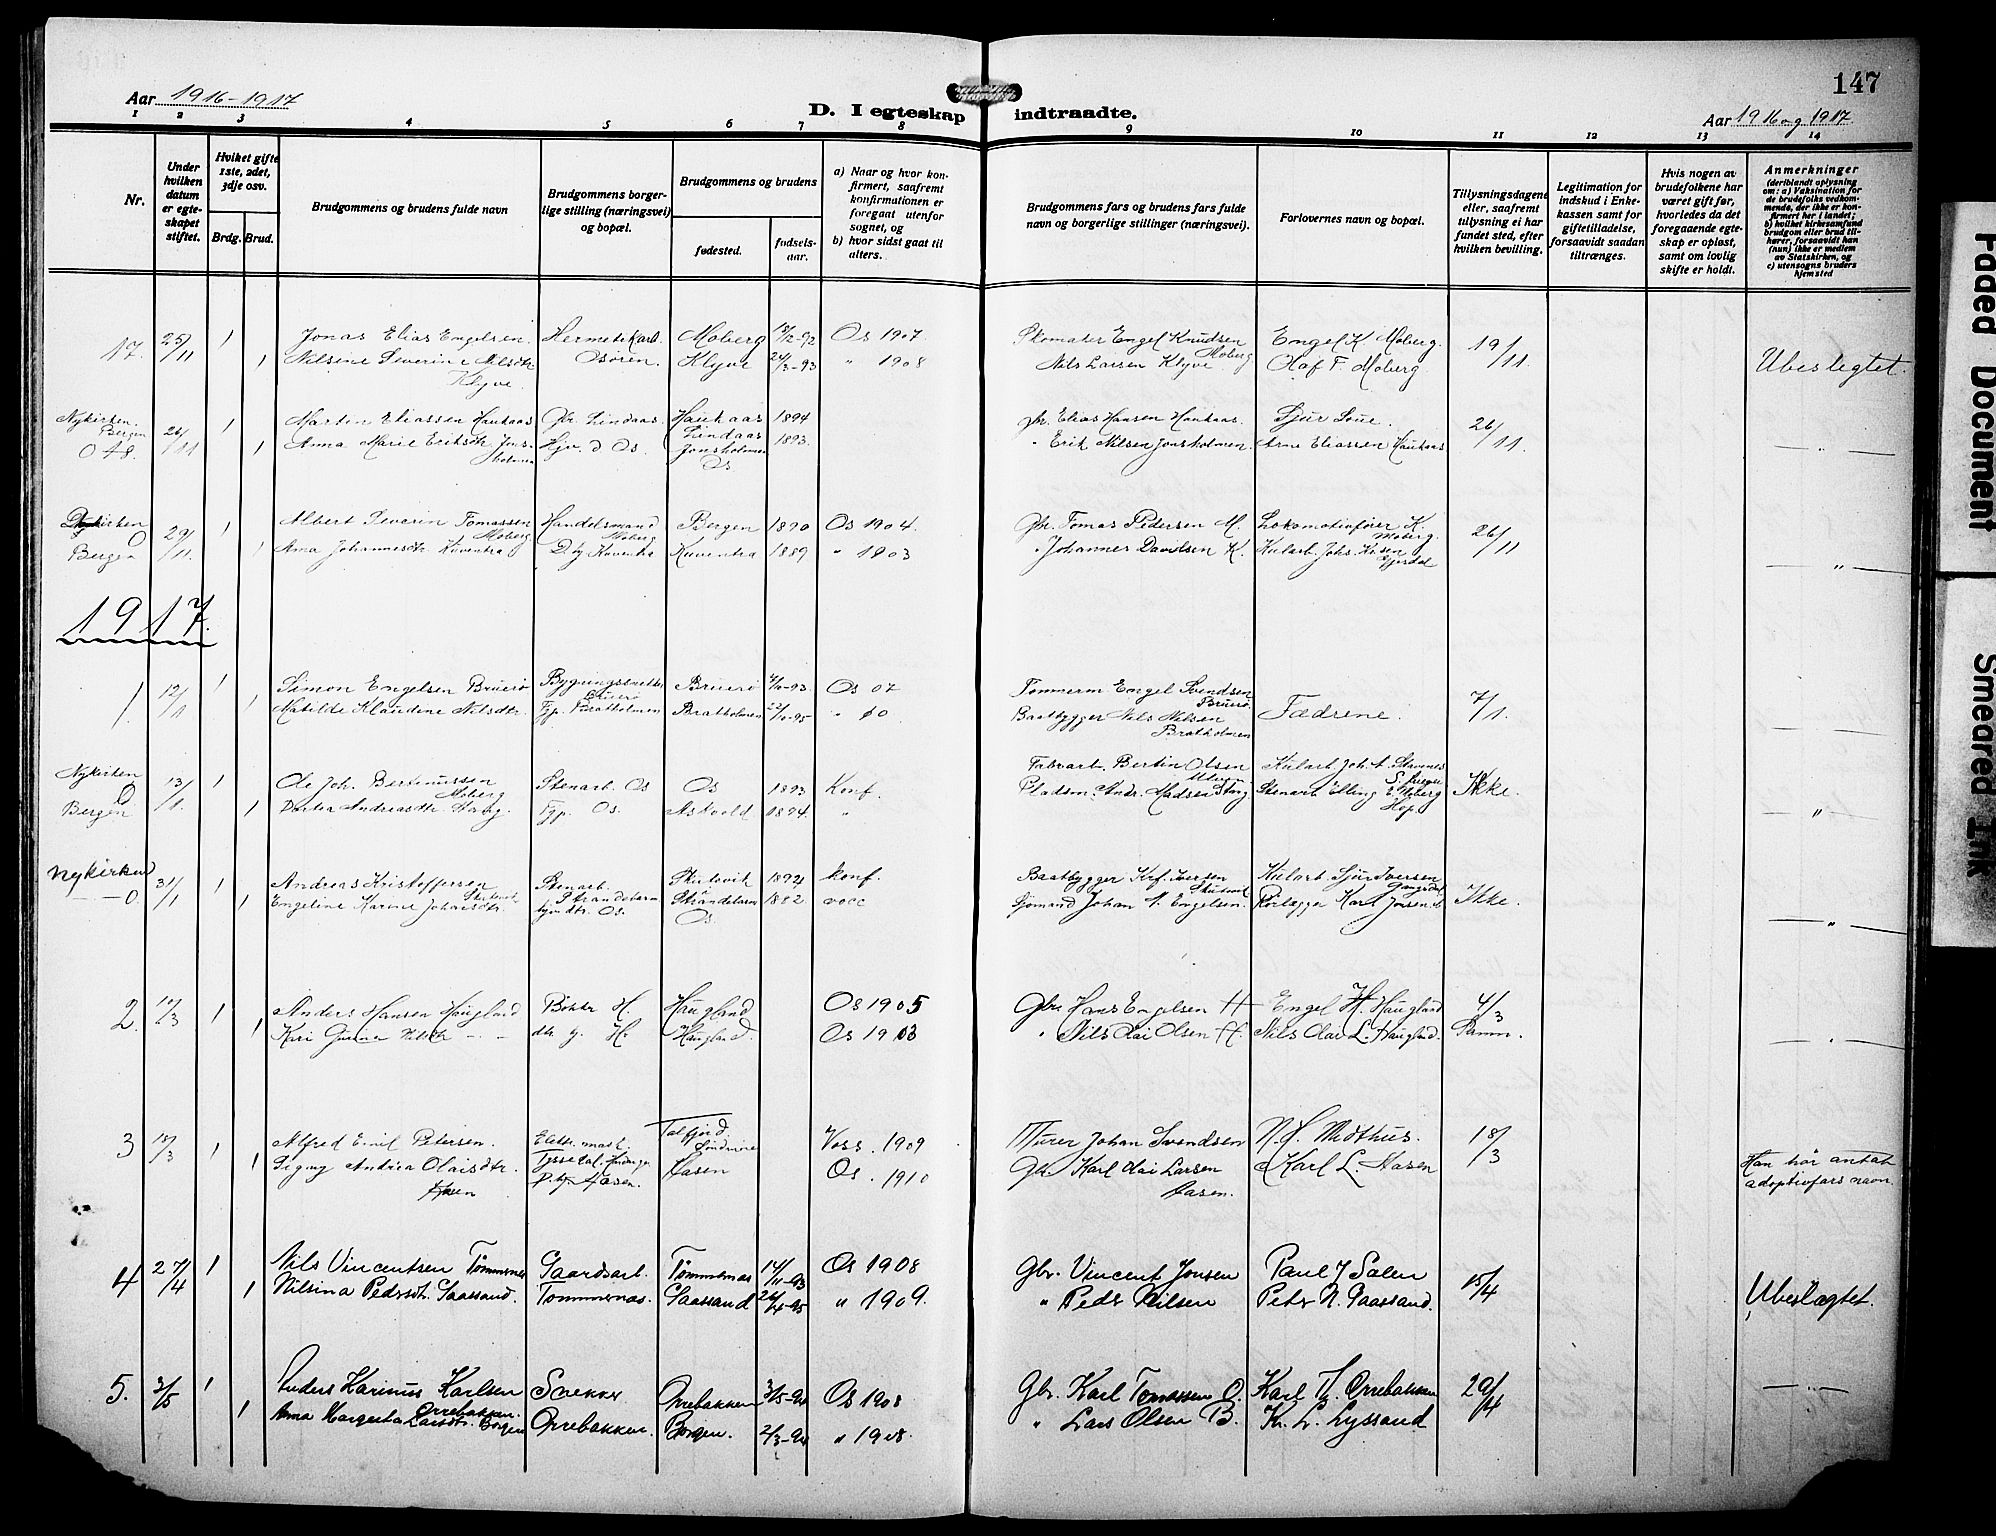 147
Aar 1916-1917
D. I egteskap indtraadte.
Aar 1916 og 1917
1 2 3 4 5 6 7 8 9 10 11 12 13 14
Nr.
Under hvilken datum er egteskapet stiftet.
Hvilket gifte 1ste, 2det, 3dje osv.
Brdg. Brud.
Brudgommens og brudens fulde navn
Brudgommens borgerlige stilling (næringsvei) og bopæl.
Brudgommens og brudens
fødested.
fødselsaar.
a) Naar og hvor konfirmert, saafremt konfirmationen er foregaat utenfor sognet, og
b) hvor sidst gaat til alters.
Brudgommens fars og brudens fars fulde navn og borgerlige stillinger (næringsvei).
Forlovernes navn og bopæl.
Tillysningsdagene eller, saafremt tillysning ei har fundet sted, efter hvilken bevilling.
Legitimation for indskud i Enkekassen samt for giftetilladelse, forsaavidt saadan tiltrænges.
Hvis nogen av brudefolkene har været gift før, hvorledes da det foregaaende egteskap er opløst, samt om lovlig skifte er holdt.
Anmerkninger
(deriblandt oplysning om: a) Vaksination for de brudefolks vedkommende, der ikke er konfirmert her i landet; b) hvilket kirkesamfund brudgom eller brud tilhører, forsaavidt han (hun) ikke er medlem av Statskirken, og c) utensogns bruders hjemsted
17. 25/11 1 Jonas Elias Engelsen. Hermetikarb. Moberg 18/12-92 Os 1907 Skomaker Engel Knudsen Moberg Engel K. Moberg. 19/11
1 Nilsine Severine Nilsdtr Klyve. Osøren. Klyve 24/3-93 " 1908 Nils Larsen Klyve Olaf F. Moberg. Ubeslegtet.
Nykirken Bergen 26/11 1 Martin Eliassen Haukaas Gbr. Lindaas Haukaas Lindaas 1894 gbr. Elias Hansen Haukaas. Sjur Soue. 26/11
1 Anna Marie Eriksdtr Jonsholmen Hjv. d Os. Jonsholmen Os 1893. " Erik Nilsen Jonsholmen Arne Eliassen Haukaas — " —
Nykirken O Bergen 29/11. 1 Albert Severin Tomassen Moberg Handelsmand Moberg Bergen 1890 Os 1904. Gbr. Tomas Pedersen M. Lokomotivfører K. Moberg. 26/11
1 Anna Johannesdtr Kuventra D. hj Kuventra Kuventra 1889 " 1903 " Johannes Davidsen K. — " —
1917.
1. 12/1 1 Simon Engelsen Bruerø Bygningssnekker Bruerø Bruerø -93. Os 07 Tømmerm Engel Svendsen Bruerø. Fædrene. 7/1.
1 Matilde Klaudine Nilsdtr. Tjp. Bratholmen Bratholmen 22/10-95 " Baatbygger Nils Nilsen Bratholmen — " —
Nykirken O Bergen 13/1. 1 Ole Joh. Bertinussen Moberg Stenarb. Os Os 1893 Konf. Fabrarb. Bertin Olsen Ikke.
1 Andreasdtr. Tjp. Os. Askvold 1894. " Pladsm. Andr. Madsen Stenarb Elling E. Moberg Hop. — " —
Nykirken — — O. 31/1 1 Andreas Kristoffersen Skutevik Stenarb. Strandebarm Skutevik Strandebarm 1892 konf. Baatbygger Krf. Iversen Skutevik Kularb Sjur Iversen Ikke.
1 Engeline Karine Johansdtr. Os. Os. 1882 vacc Sjømand Johan N. Engelsen. Rørlægger Karl — " —
2. 10/3 1 Anders Hansen Haugland Bøkker H. Haugland Os 1905 Gbr. Hans Engelsen H Engel H. Haugland 4/3
1 Kari Nilsdtr — " — dtr g. H. Haugland. Os 1903 " Nils Olai Olsen H. Nils Olai L. Haugland. — " —
3 18/3 1 Alfred Emil Petersen. Elektr. mask Tafjord Søndmøre Voss. 1909 Murer Johan Svendsen N. S. Midthus. 18/3
1 Signy Andrea Olaisdtr. Hasen Tyssedal. Hardanger Hasen Os. 1910 Gbr Karl Olai Larsen Hasen. Karl L. Hasen Han bør antat adoptivfars navn.
4 27/4 1 Nils Vincentsen Tømmernes Gaardsarb. Tømmernæs 14/11-93 Os 1908 Gbr. Vincent Jonsen Paul J Salen 15/4
1 Nilsina Pedersdtr. Gaassand. Tømmernæs. Gaassand 26/4-95 " 1909. " Peder Nilsen Peter N. Gaassand. Ubeslægtet.
5. 3/5 1 Anders Karinus Karlsen Orrebakken. Snekker Orrebakken 3/5-94 Os 1908 Gbr. Karl Tomassen O. Karl T. Orrebakken 29/4 — " —
1 Anna Margreta Larsdtr. Borgen Orrebakken. Borgen. 2/3-94 " 1908. " Lars Olsen B. Kr. L. Lyssand
Faded Document
Smeared Ink